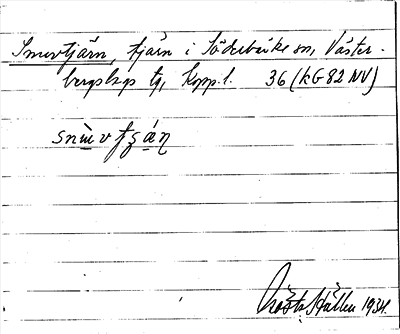 Snuvtjärn, tjärn i Söderbärke sn, Väster-
bergslags tg, Kopp. l. 36 (KG 82 NV)
snùvtʂän
Gösta Hallén 1934.